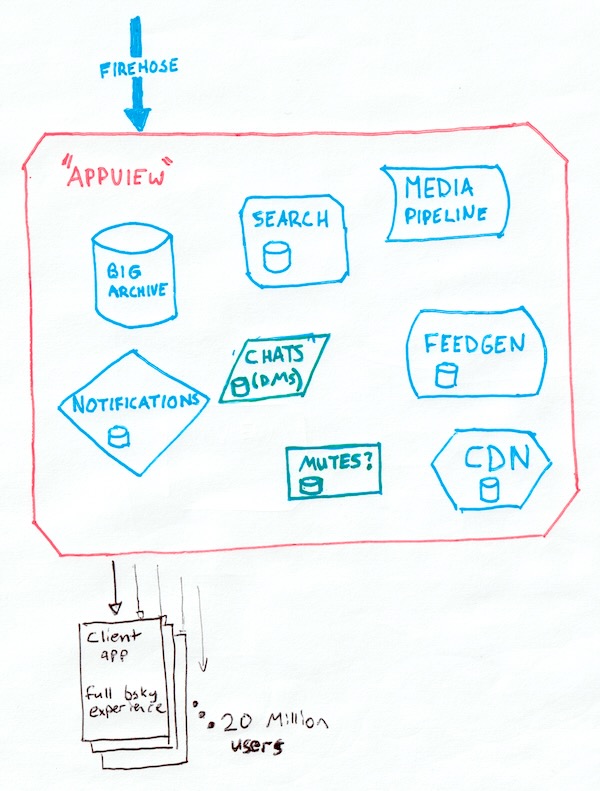 FIREHOSE
"APPVIEW"
SEARCH
MEDIA
PIPELINE
BIG
ARCHIVE
"CHATS"
(DMs)
FEEDGEN
NOTIFICATIONS
MUTES?
CDN
Client
app
full bsky
experience
20 Million
users